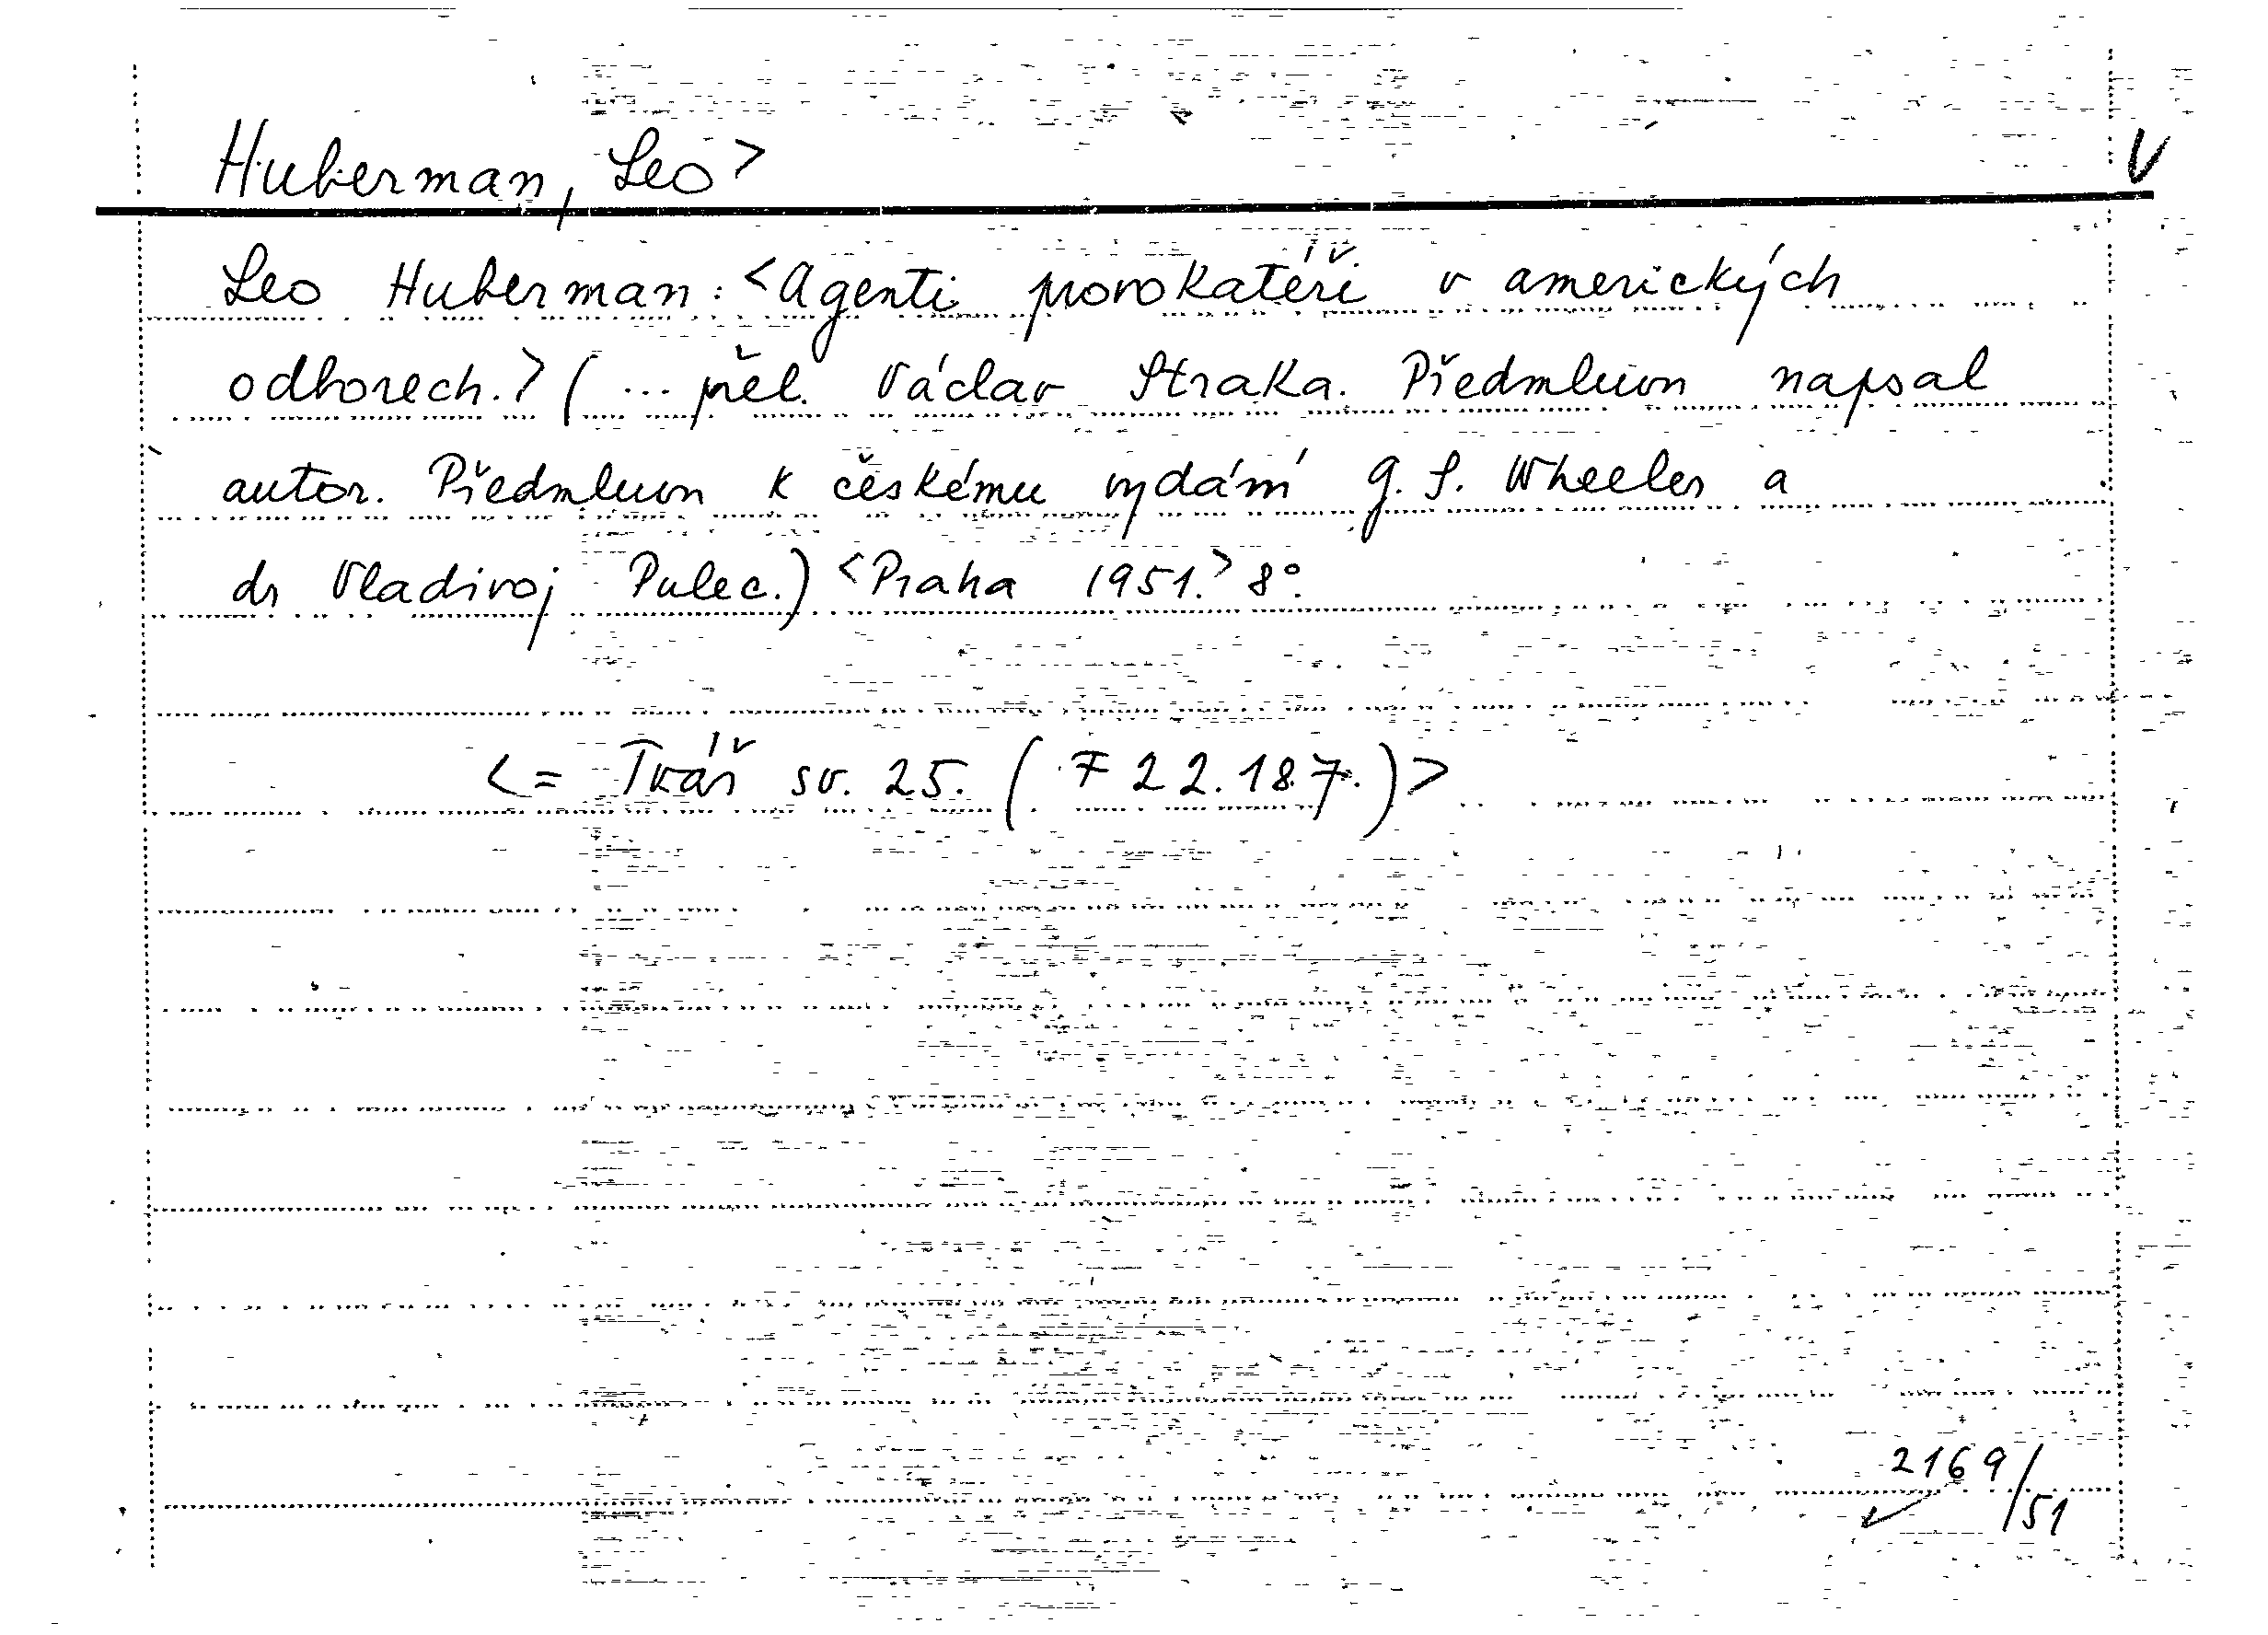 Huberman, Leo> V
Leo Huberman: <Agenti provokatéři v amerických
odborech.> (... přel. Václav Straka. Předmluvu napsal
autor. Předmluvu k českému vydání G. S. Wheeler a
dr Vladivoj Pulec.) <Praha 1951.> 8°.
<= Tvář sv. 25. (F 22.187.)>
2169/51